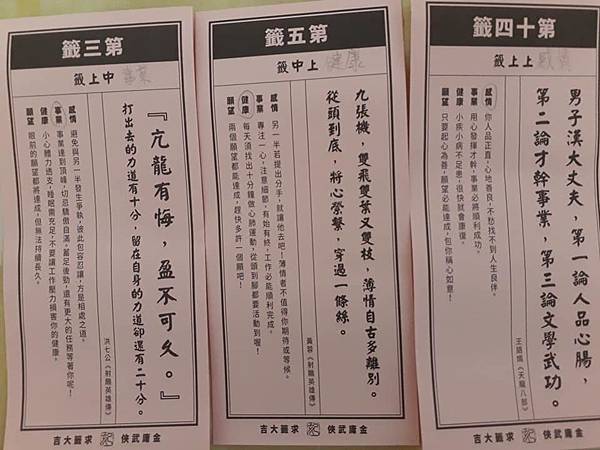 第三籤
中上籤
事業
『亢龍有悔，盈不可久。』
打出去的力道有十分，留在自身的力道卻還有二十分。
洪七公《射鵰英雄傳》
感情 避免與另一半發生爭執，彼此包容忍讓，方是相處之道。
事業 事業達到頂峰，切忌驕傲自滿，蓄足後勁，還有更大的任務等著你呢！
健康 小心體力透支，睡眠需充足，不要讓工作壓力損害你的健康。
願望 眼前的願望都將達成，但無法持續長久。
金庸武俠 求籤大吉
第五籤
上中籤
健康
九張機，雙飛雙葉又雙枝，薄情自古多離別。
從頭到底，將心縈繫，穿過一條絲。
黃蓉《射鵰英雄傳》
感情 另一半若提出分手，就讓他去吧！薄情者不值得你期待或等候。
事業 專注一心，注意細節，有始有終，工作必能順利完成。
健康 每天須找出十分鐘做心肺運動，從頭到腳都要活動到喔！
願望 兩個願望都能達成，趕快多許一個願吧！
金庸武俠 求籤大吉
第十四籤
上上籤
男子漢大丈夫，第一論人品心腸，
第二論才幹事業，第三論文學武功。
王語嫣《天龍八部》
感情 你人品正直，心地善良，不愁找不到人生良伴。
事業 用心發揮才幹，事業必將順利成功。
健康 小疾小病不足患，很快就會康復。
願望 只要起心為善，願望必能達成，包你稱心如意！
金庸武俠 求籤大吉